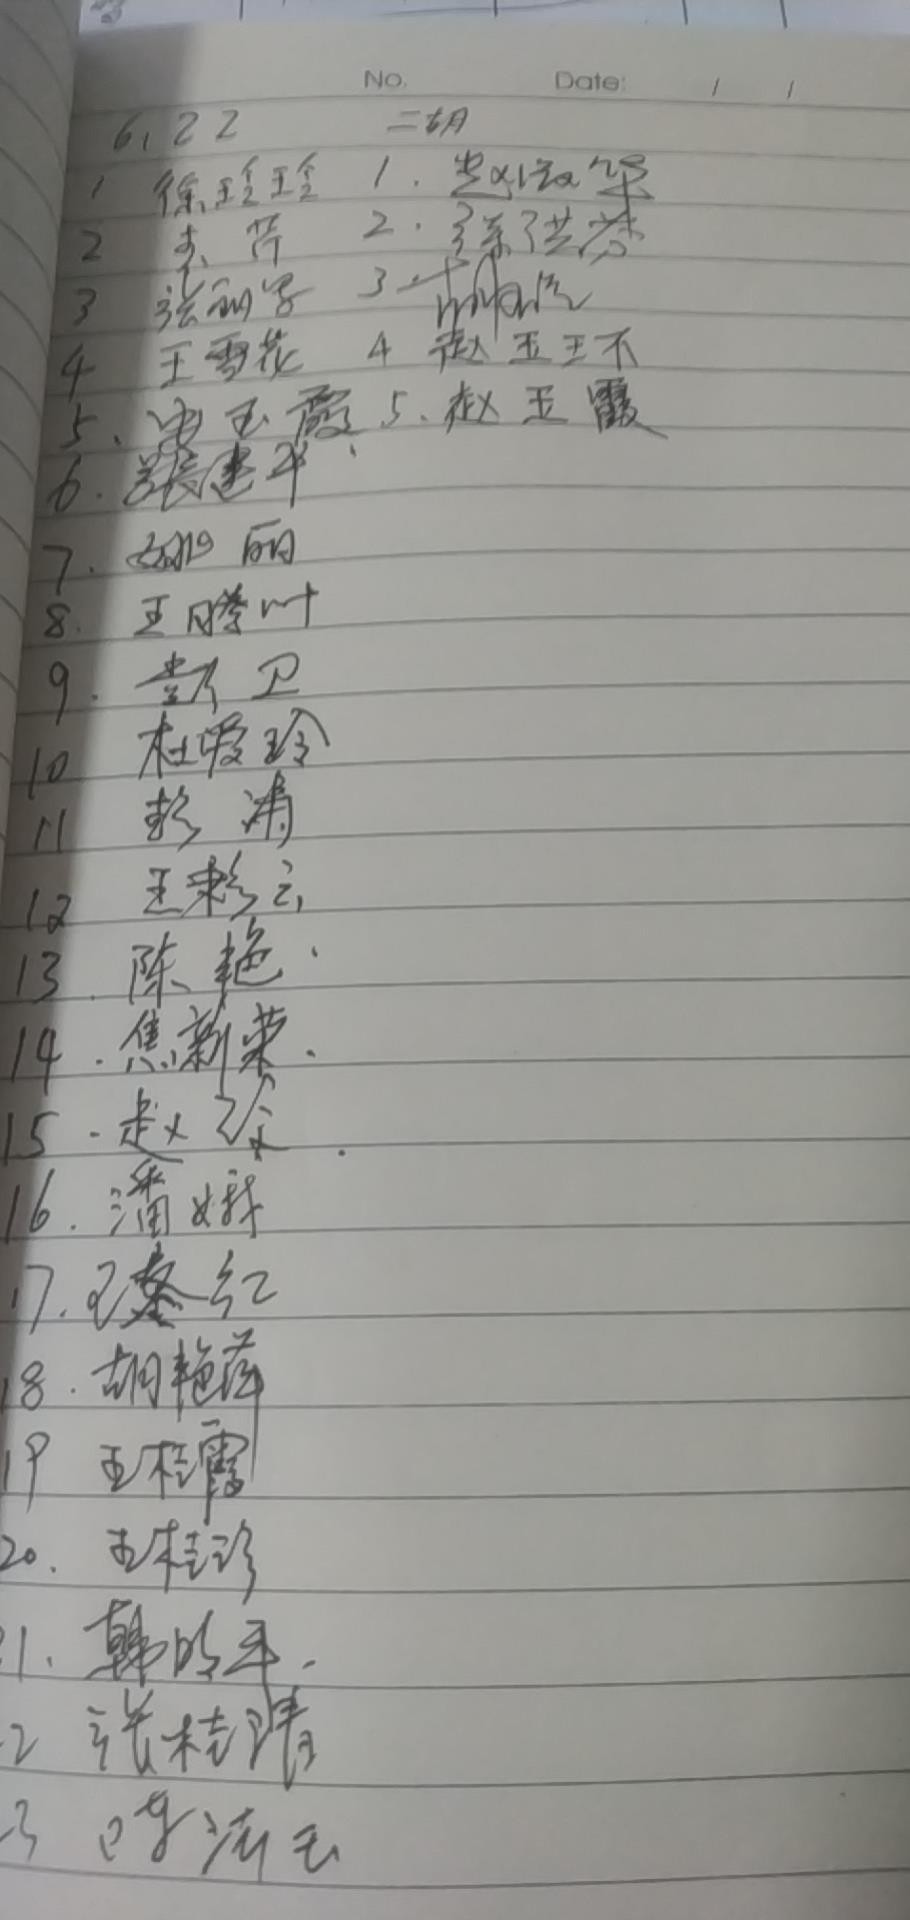 No. Date: / /
6.22 二胡
1 徐玲玲 1.
2 2. 孙洪芬
3 张丽 3.
4 王雪花 4 赵玉环
5. 玉霞 5. 赵玉霞
6. 张建平
7. 姚丽
8. 王腾叶
9. 彭卫
10 杜爱玲
11 彭清
12 王彩云
13. 陈艳.
14. 焦新荣.
15. 赵
16. 潘娥
17. 王秦红
18. 胡艳萍
19 王桂霞
20. 王桂珍
21. 韩明平.
22 张桂清
23 玉